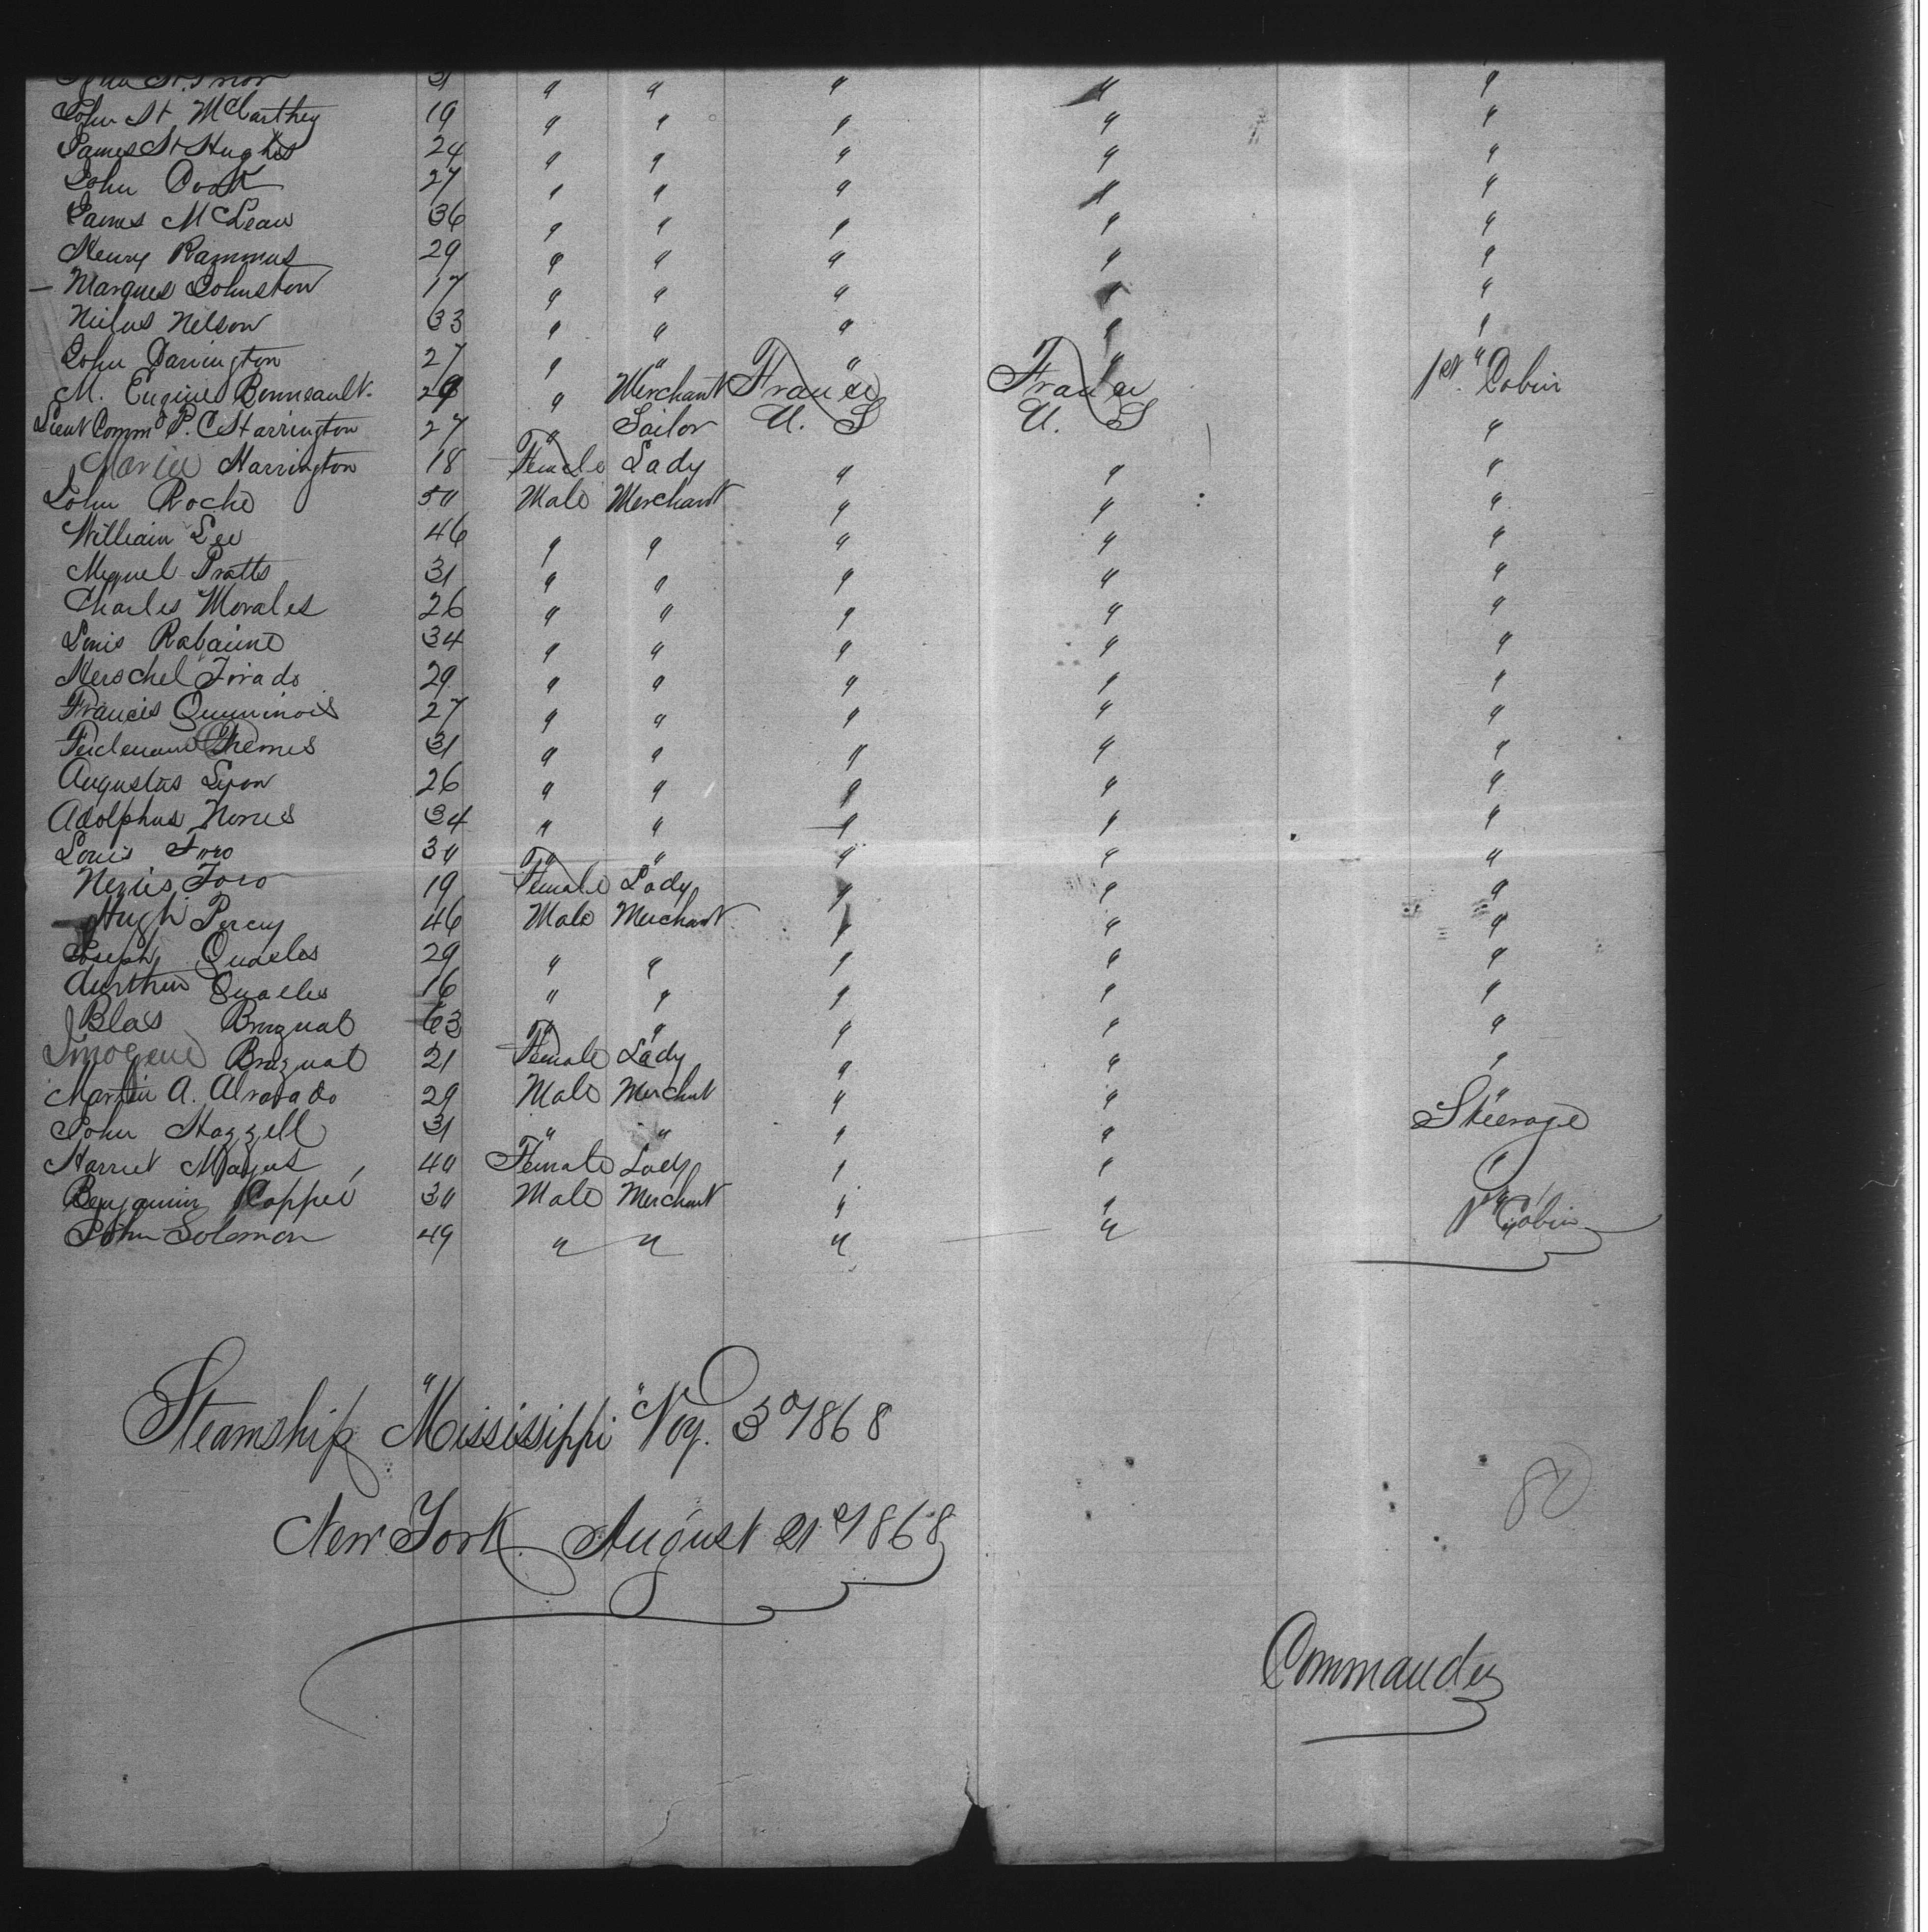 31 " " " " "
John St McCarthey 19 " " " " "
James St Hughes 24 " " " " "
John Cook 27 " " " " "
James McLean 36 " " " " "
Henry Rammus 29 " " " " "
Marques Johnston 17 " " " " "
Nilus Nelson 33 " " " " "
John Darrington 27 " " " " "
M. Eugine Bonneault 29 " Merchant France France 1st Cabin
Lieut Commd P. C Harrington 27 " Sailor U. S U. S "
Maria Harrington 18 Female Lady " " "
John Roche 50 Male Merchant " " "
William Lee 46 " " " " "
Miguel Pratts 31 " " " " "
Charles Morales 26 " " " " "
Louis Rabaine 34 " " " " "
Herschel Tirado 29 " " " " "
Francis Quuninois 27 " " " " "
31 " " " " "
Augustus Lyon 26 " " " " "
Adolphus Nones 34 " " " " "
Louis Toro 30 " " " " "
Toro 19 Female Lady " " "
Hugh Percy 46 Male Merchant " " "
Joseph Quaeles 29 " " " " "
Aurthur Quaeles 16 " " " " "
Blas Brazual 63 " " " " "
Imogene Brazual 21 Female Lady " " "
Martin A. Alvarado 29 Male Merchnt " " "
John Hazzell 31 " " " " Steerage
Harriet Magus 40 Female Lady " " "
Benjamin Coppee 30 Male Merchant " " "
John Solomon 49 " " " " 1st Cabin
Steamship "Mississippi" Voy. 3d 1868
New York August 21st 1868
80
Commander